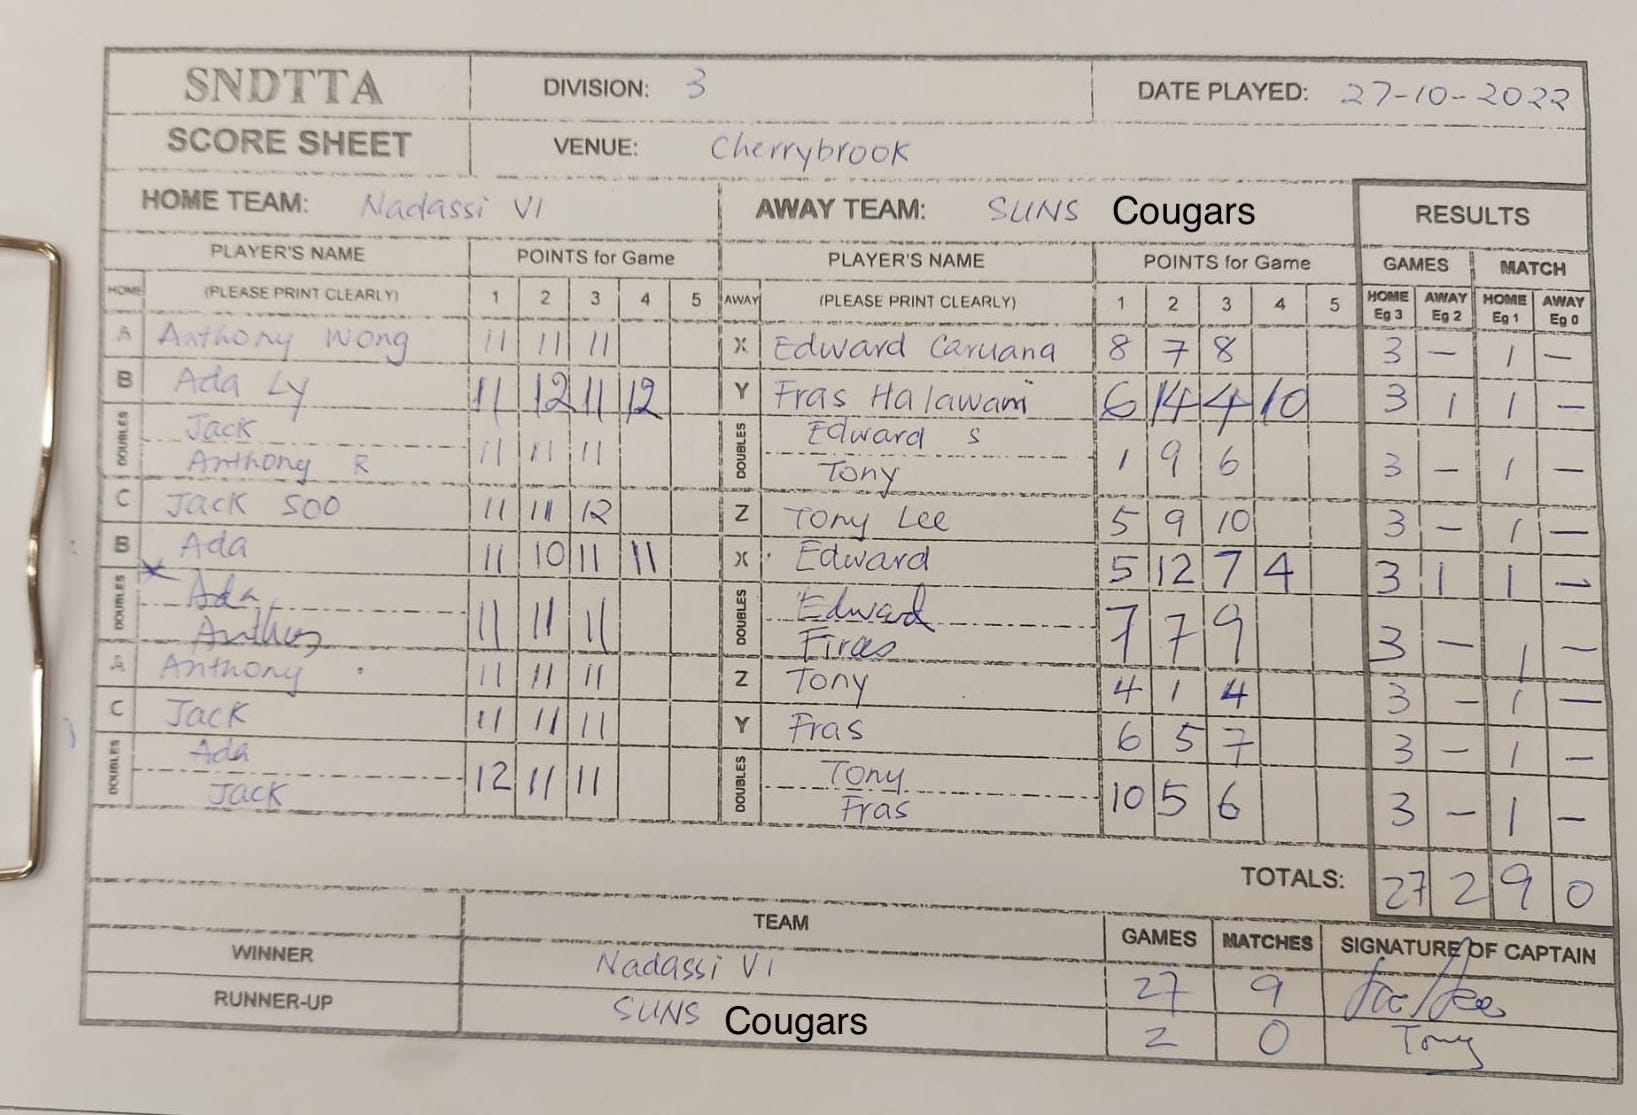 SNDTTA DIVISION: 3 DATE PLAYED: 27-10-2022
SCORE SHEET VENUE: Cherrybrook
HOME TEAM: Nadassi VI AWAY TEAM: SUNS Cougars RESULTS
PLAYER'S NAME POINTS for Game PLAYER'S NAME POINTS for Game GAMES MATCH
HOME (PLEASE PRINT CLEARLY) 1 2 3 4 5 AWAY (PLEASE PRINT CLEARLY) 1 2 3 4 5 HOME Eg 3 AWAY Eg 2 HOME Eg 1 AWAY Eg 0
A Anthony Wong 11 11 11 X Edward Caruana 8 7 8 3 — 1 —
B Ada Ly 11 12 11 12 Y Fras Halawani 6 14 4 10 3 1 1 —
DOUBLES Jack Anthony R 11 11 11 DOUBLES Edward S Tony 1 9 6 3 — 1 —
C Jack Soo 11 11 12 Z Tony Lee 5 9 10 3 — 1 —
B Ada 11 10 11 11 X Edward 5 12 7 4 3 1 1 —
DOUBLES Ada Anthony 11 11 11 DOUBLES Edward Firas 7 7 9 3 — 1 —
A Anthony 11 11 11 Z Tony 4 1 4 3 — 1 —
C Jack 11 11 11 Y Fras 6 5 7 3 — 1 —
DOUBLES Ada Jack 12 11 11 DOUBLES Tony Fras 10 5 6 3 — 1 —
TOTALS: 27 2 9 0
TEAM GAMES MATCHES SIGNATURE OF CAPTAIN
WINNER Nadassi VI 27 9
RUNNER-UP SUNS Cougars 2 0 Tony